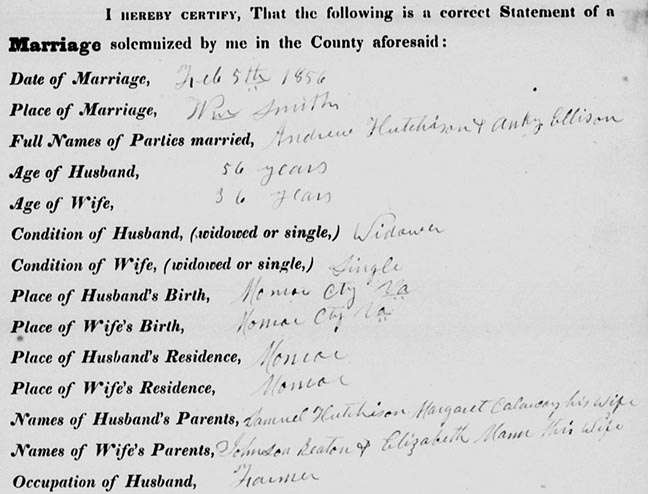 I HEREBY CERTIFY, That the following is a correct Statement of a
Marriage solemnized by me in the County aforesaid:
Date of Marriage, Feb 5th 1856
Place of Marriage, Wm Smiths
Full Names of Parties married, Andrew Hutchison & Anky Ellison
Age of Husband, 56 years
Age of Wife, 36 years
Condition of Husband, (widowed or single,) Widower
Condition of Wife, (widowed or single,) Single
Place of Husband's Birth, Monroe Cty Va
Place of Wife's Birth, Monroe Cty Va
Place of Husband's Residence, Monroe
Place of Wife's Residence, Monroe
Names of Husband's Parents, Samuel Hutchison Margaret Calaway his wife
Names of Wife's Parents, Johnson & Elizabeth Mann his Wife
Occupation of Husband, Farmer